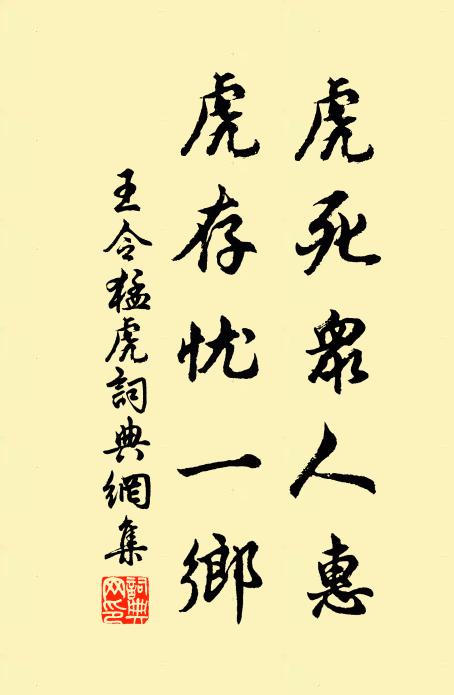 虎死眾人惠
虎存忧一鄉
王令猛虎詞典網集
詞典
网印